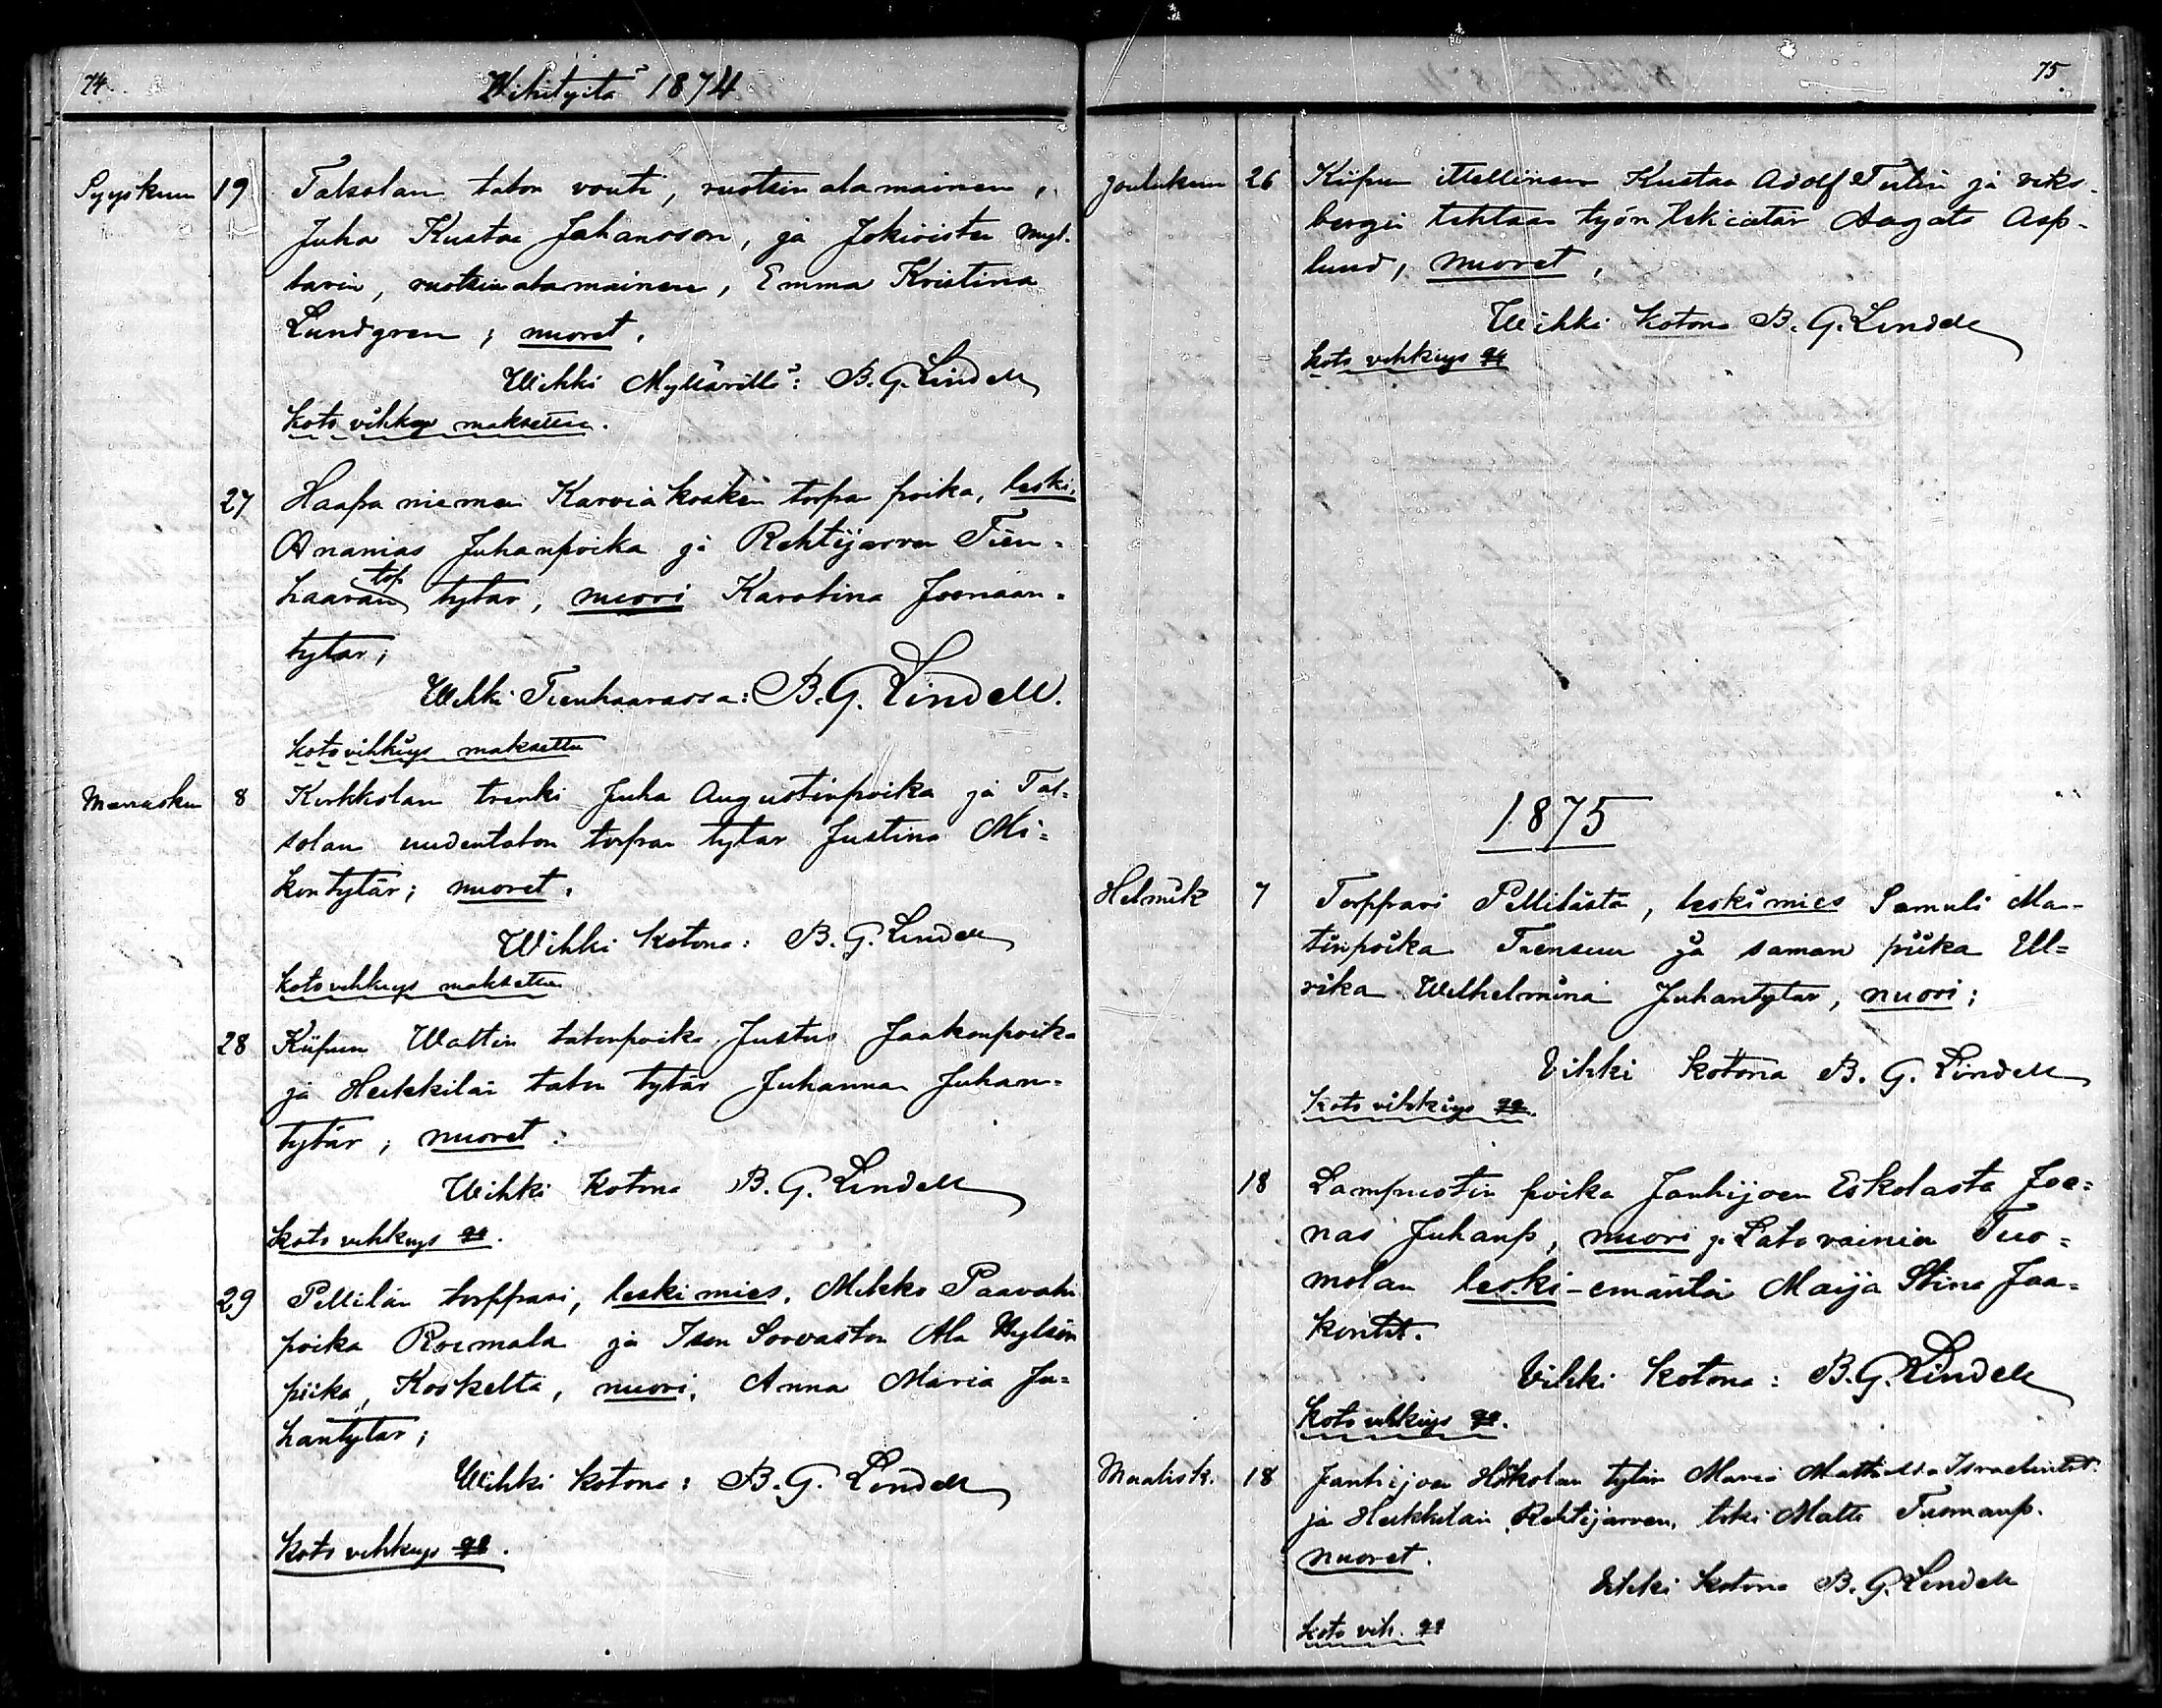 74.
Wihityitä 1874
Syyskuu 19 Talsolan talon vouti, ruotsin alamainen,
Juha Kustaa Johansson, ja Jokioisten myl-
lärin, ruotsin alamainen, Emma Kristina
Lundgren; nuoret.
Wihki Myllärillä: B. G. Lindell
Koto vihkiys maksettu.
27 Haapaniemen Karviakosken torpan poika, leski,
Ananias Juhanpoika ja Rehtijärven Tien-
haaran top. tytär, nuori Karolina Joonaan-
tytär;
Wihki Tienhaarassa: B. G. Lindell.
Kotovihkiys maksettu
Marrasku 8 Kirkkolan trenki Juha Augustinpoika ja Tal-
solan uudentalon torpan tytär Justina Mi-
kontytär; nuoret.
Wihki kotona: B. G. Lindell
Kotovihkiys maksettu
28 Kiipun Wattin talonpoika Justus Jaakonpoika
ja Heikkilän talon tytär Juhanna Juhan-
tytär; nuoret.
Wihki kotona B. G. Lindell
Koto vihkiys
29 Pellilän torppari, leskimies, Mikko Paavalin
poika Roimala ja Ison Sorvaston Ala
piika, Koskelta, nuori, Anna Maria Ju-
hantytär;
Wihki kotona: B. G. Lindell
Koto vihkiys
75.
Joulukuu 26 Kiipun itellinen Kustaa Adolf Tulin ja viks-
bergin tehtaan työn tekiätär Aagata Asp-
lund, nuoret,
Wihki kotona B. G. Lindell
Koto vihkiys
1875
Helmik 7 Torppari Pellilästä, leskimies Samuli Ma-
tinpoika Trensuu ja saman piika Ul-
rika Wilhelmina Juhantytär, nuori;
Vihki kotona B. G. Lindell
Koto vihkiys
18 Lampuotin poika Janhijoen Eskolasta Joo-
nas Juhanp, nuori ja Latovainion Tuo-
molan leski-emäntä Maija Stina Jaa-
kontt.
Vihki kotona: B. G. Lindell
Koto vihkiys
Maalisk. 18 Janhijoen Hökolan tytär Maria Mathilda Israelintt.
ja Heikkilän Rehtijärven, Matti Tuomanp.
nuoret.
Vihki kotona B. G. Lindell
Koto vih.